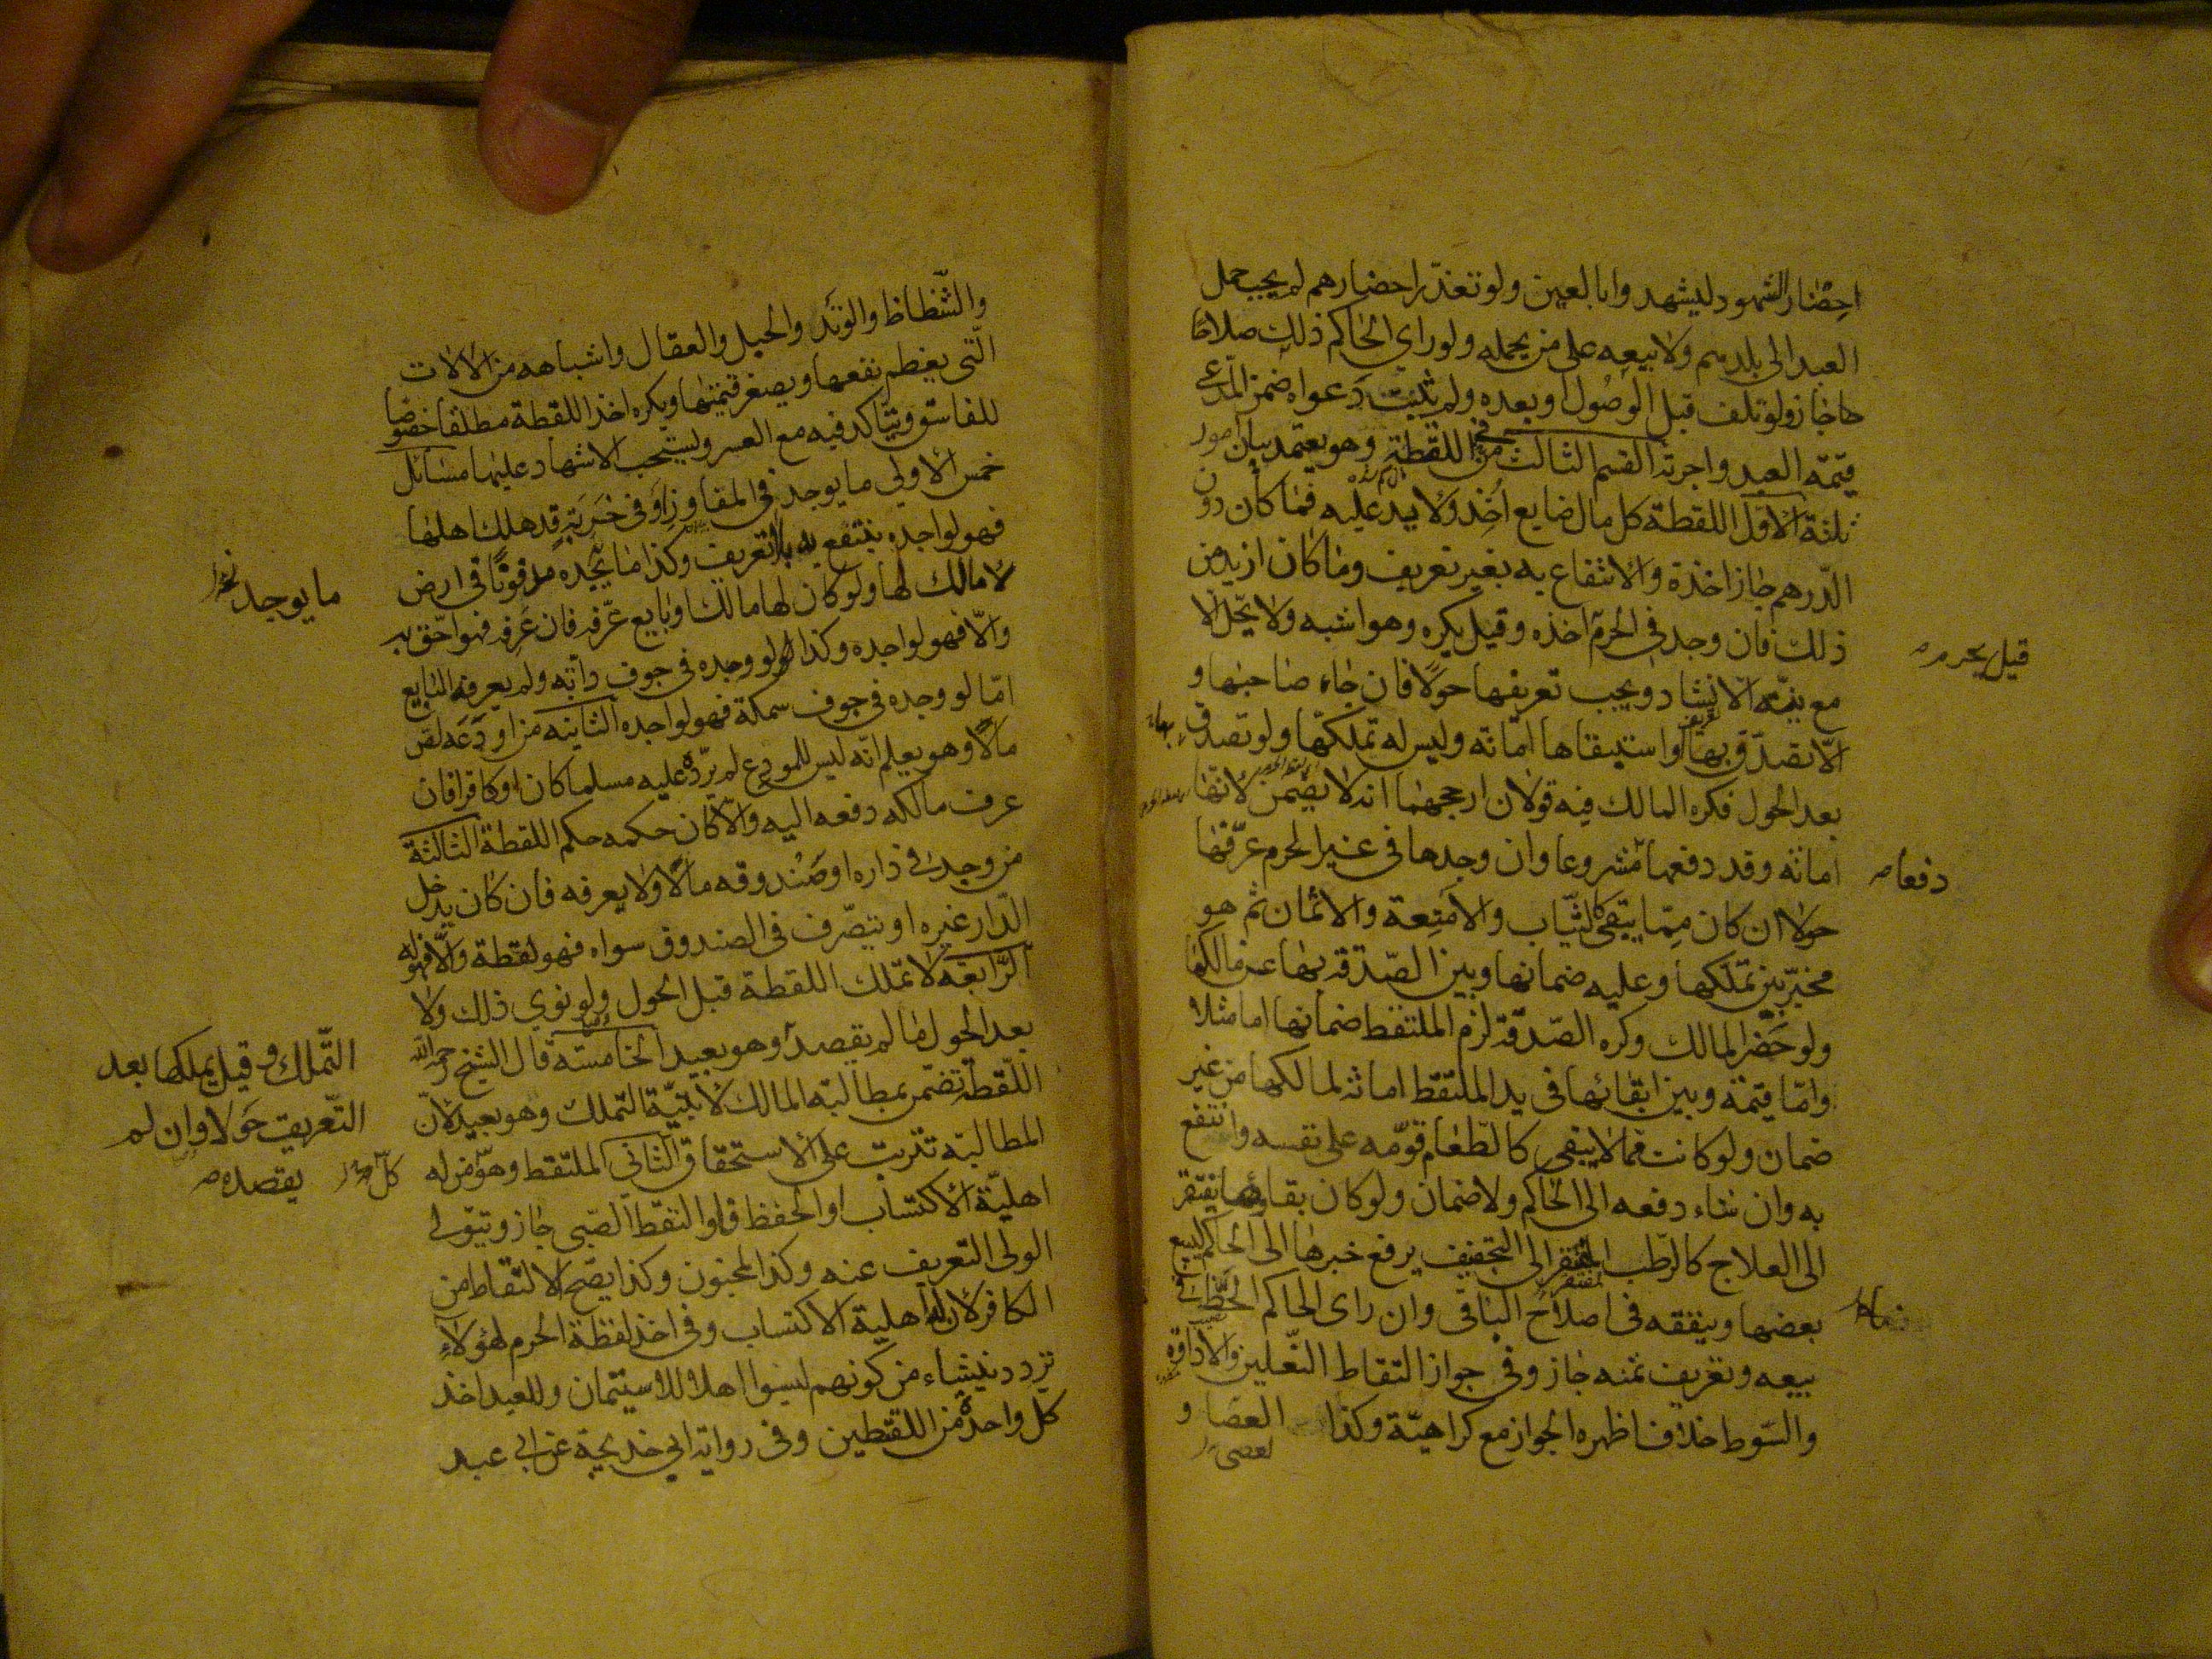 احضار الشهود ليشهدوا بالعين ولو تعذّر احضارهم لم يجب حمل
العبد الى بلدهم ولا بيعه على من يحمله ولو راى الحاكم ذلك صلاحا
جاز ولو تلف قبل الوصول او بعده ولم تثبت دعواه ضمن المدّعى
قيمة العبد واجرته القسم الثالث في اللقطة وهو يعتمد بيان امور
ثلثة الاوّل اللقطة كل مال ضايع اُخِذ ولا يد عليه فما كان دون
الدّرهم جاز اخذه والانتفاع به بغير تعريف وما كان ازيد من
ذلك فان وجد في الحرم اخذه وقيل يكره وهو اشبه ولا يحّل الا
قيل يحرم
مع نيّة الانشاد ويجب تعريفها حولًا فان جاء صاحبها و
الّا تصدّق بها او استبقاها امانة وليس له تملّكها ولو تصدق بها
بعد الحول فكره المالك فيه قولان ارجحهما انه لا يضمن لانّها
امانة وقد دفعها مشروعا وان وجدها في غير الحرم عرّفها
دفعا
حولا ان كان ممّا يبقى كالثّياب والامتعة والاثمان ثم هو
مخيّر بين تملّكها وعليه ضمانها وبين الصّدقة بها عن مالكها
ولو حَضَر المالك وكره الصّدقة لزم الملتقط ضمانها اما مثلا
وامّا قيمة وبين ابقائها في يد الملتقط امانة لمالكها من غير
ضمان ولو كانت مما لا يبقى كالطّعام قوّمه على نفسه وانتفع
به وان شاء دفعه الى الحاكم ولا ضمان ولو كان بقاؤها يفتقر
الى العلاج كالرّطب المفتقر الى التجفيف يرفع خبرها الى الحاكم ليبيع
بعضها وينفقه في اصلاح الباقى وان راى الحاكم الحَظّ في
بيعه وتعريف ثمنه جاز وفي جواز التقاط النّعلين والاداوة
والسّوط خلاف اظهره الجواز مع كراهيّة وكذا العصا و
لعصى
والشّظاظ والوَتَد والحبل والعقال واشباهه من الالات
الّتى يعظم نفعها ويصغر قيمتها ويكره اخذ اللقطة مطلقا خصوصا
للفاسق ويتاكد فيه مع العسر ويستحب الاشهاد عليها مسائل
خمس الاولى ما يوجد في المفاوز او في خَرِبَةٍ قد هلك اهلها
فهو لواجده ينتفع به بلا تعريف وكذا ما يجده مدفونًا في ارض
ما يوجد
لا مالك لها ولو كان لها مالك او بايع عرّفه فان عَرِفه فهو احّق به
والّا فهو لواجده وكذا لو وجده في جوف دابّه ولم يعرفه البايع
امّا لو وجده في جوف سمكة فهو لواجده الثانيه من اودَعَه لص
مالًا وهو يعلم انّه ليس للمودع لم يردّه عليه مسلما كان او كافرا فان
عرف مالكه دفعه اليه والّا كان حكمه حكم اللقطة الثالثة
من وجد في داره او صُندوقه مالًا ولا يعرفه فان كان يدخل
الدّار غيره او يتصّرف في الصندوق سواه فهو لقطة والّا فهو له
الرّابعة لا تملك اللقطة قبل الحول ولو نوى ذلك ولا
بعد الحول ما لم يقصد وهو بعيد الخامسة قال الشيخ رحمه الله
التّملك وقيل يملكها بعد
التّعريف حَولا وان لم
يقصده
اللّقطة تضمّن بمطالبة المالك لا بنيّة التملك وهو بعيد لانّ
المطالبة تترتب على الاستحقاق الثانى الملتقط وهو من له
كلّ
اهليّة الاكتساب او الحفظ فلو التقط الصّبى جاز ويتولى
الولى التعريف عنه وكذا المجنون وكذا يصّح الالتقاط من
الكافر لان له اهلية الاكتساب وفي اخذ لقطة الحرم لهؤلاءِ
تردد ينشاء من كونهم ليسوا اهلا للاستيمان وللعبد اخذ
كل واحدة من اللقطتين وفي رواية ابي خديجة عن ابي عبد